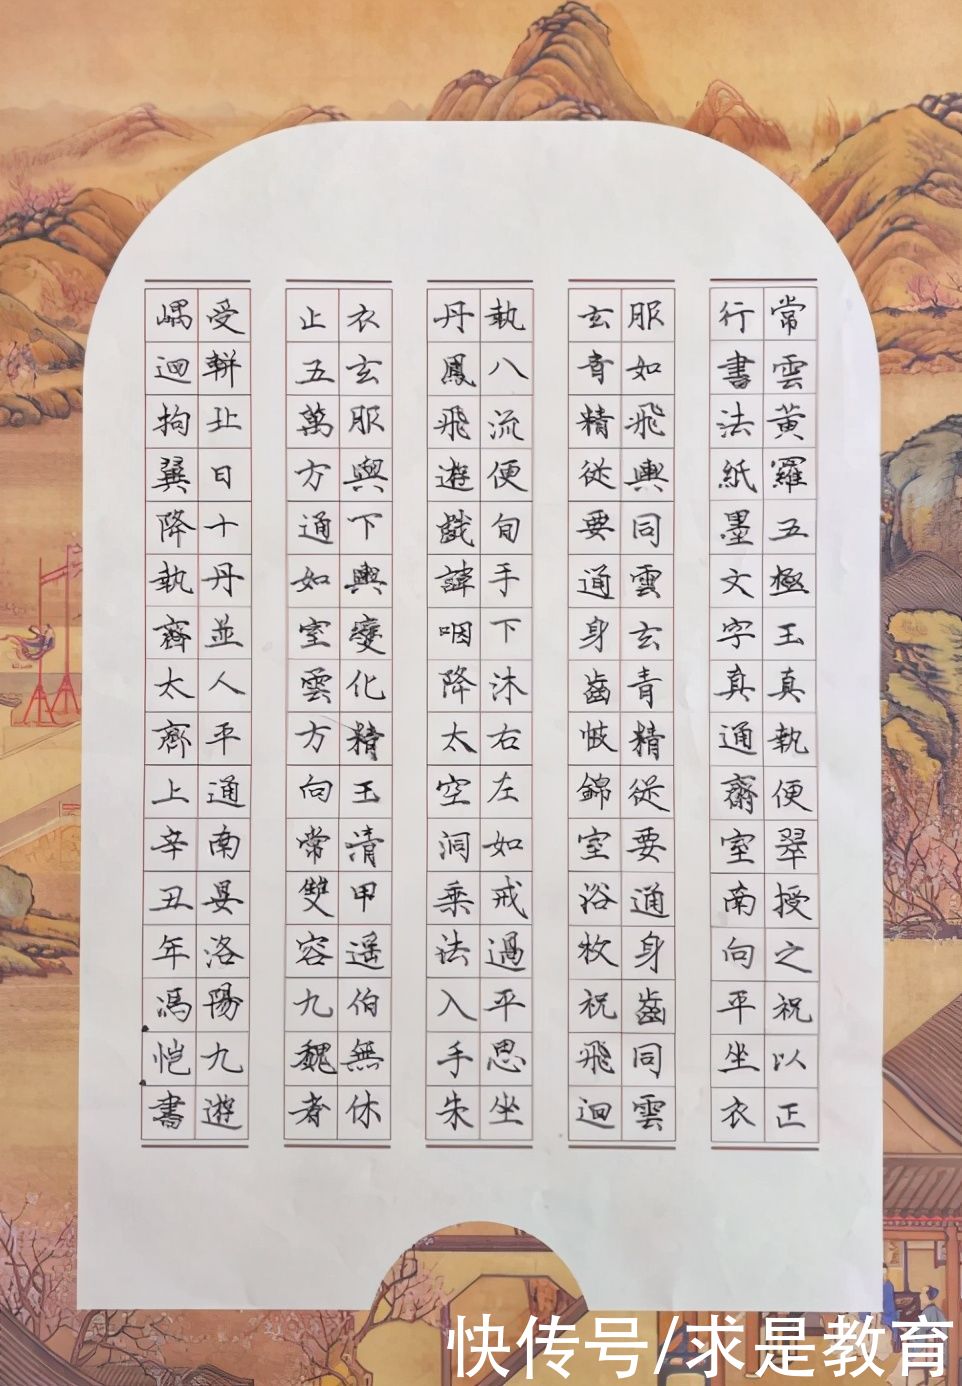 常雲黃羅五極玉真執便翠授之祝以正
行書法紙墨文字真通齋室南向平坐衣
服如飛輿同雲玄青精從要通身齒同雲
玄青精從要通身齒帔錦室浴敉祝飛迴
執八流便旬手下沐右左如戒過平思坐
丹鳳飛遊戲諱咽降太空洞乘法入手朱
衣玄服與下輿變化精玉清甲遥伯無休
止五萬方通如室雲方向常雙容九魏者
受輧北日十丹並人平通南晏洛陽九遊
嵎迴拘巽降執齊太齊上辛丑年馮愷書
快传号/求是教育